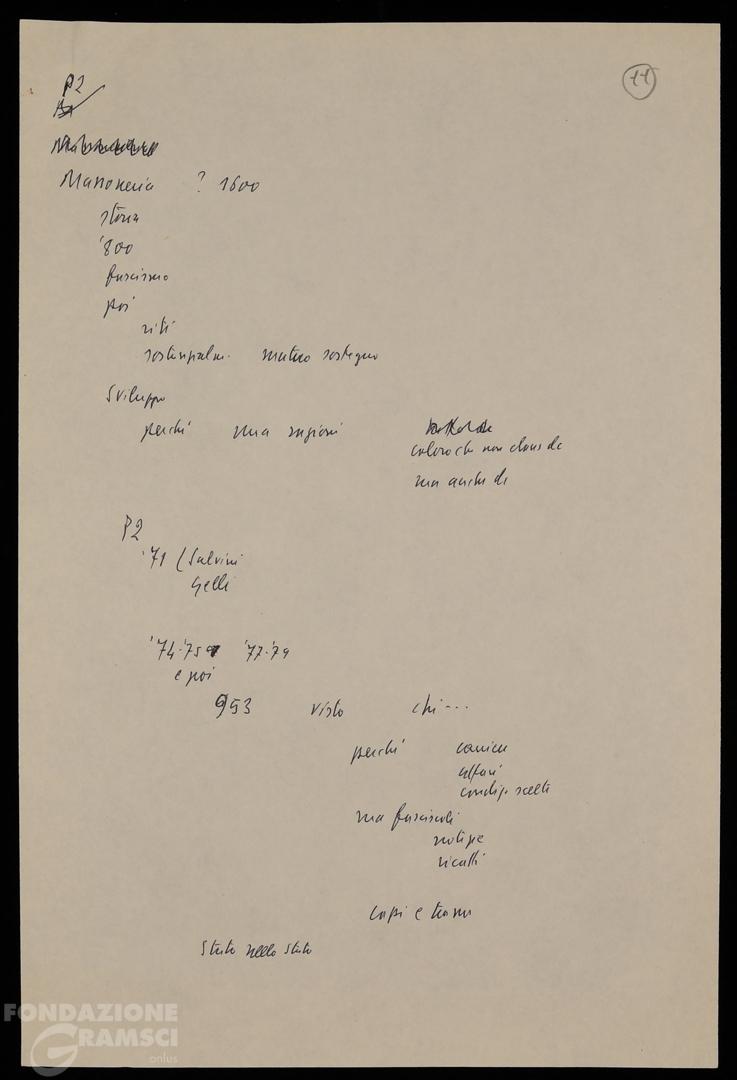 P2
11
Massoneria ? 1600
storia
'800
fascismo
poi
riti
mutuo sostegno
Sviluppo
perché una ragioni
coloro che non
ma anche di
P2
'71 (Salvini
Gelli
'74-'75 '77-'79
e poi
953 visto chi...
perché carriera
affari
condiz. scelte
ma fascicoli
notizie
ricatti
capi e trame
Stato nello Stato
FONDAZIONE
GRAMSCI
onlus